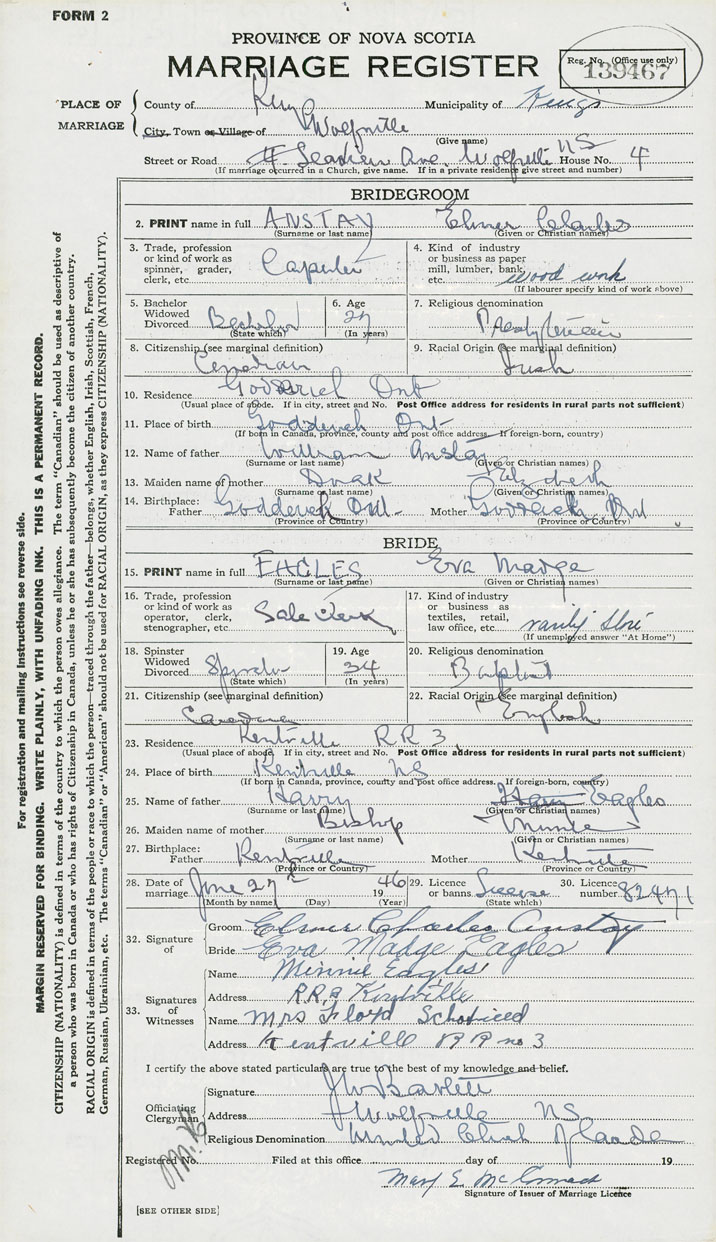 FORM 2
PROVINCE OF NOVA SCOTIA
MARRIAGE REGISTER
Reg. No. (Office use only)
139467
PLACE OF MARRIAGE
County of Kings Municipality of Kings
City, Town or Village of Wolfville
(Give name)
Street or Road Ave, Wolfville NS House No. 4
(If marriage occurred in a Church, give name. If in a private residence give street and number)
BRIDEGROOM
2. PRINT name in full ANSTAY Elmer Charles
(Surname or last name) (Given or Christian names)
3. Trade, profession or kind of work as spinner, grader, clerk, etc. Carpenter
4. Kind of industry or business as paper mill, lumber, bank, etc. wood work
(If labourer specify kind of work above)
5. Bachelor Widowed Divorced Bachelor
(State which)
6. Age 27
(In years)
7. Religious denomination Presbyterian
8. Citizenship (see marginal definition) Canadian
9. Racial Origin (see marginal definition) Irish
10. Residence Godderich Ont
(Usual place of abode. If in city, street and No. Post Office address for residents in rural parts not sufficient)
11. Place of birth Godderich Ont
(If born in Canada, province, county and post office address. If foreign-born, country)
12. Name of father William Anstay
(Surname or last name) (Given or Christian names)
13. Maiden name of mother Elizabeth
(Surname or last name) (Given or Christian names)
14. Birthplace: Father Godderich Ont Mother Godderich Ont
(Province or Country) (Province or Country)
BRIDE
15. PRINT name in full EAGLES Eva Madge
(Surname or last name) (Given or Christian names)
16. Trade, profession or kind of work as operator, clerk, stenographer, etc. Sale clerk
17. Kind of industry or business as textiles, retail, law office, etc. store
(If unemployed answer "At Home")
18. Spinster Widowed Divorced Spinster
(State which)
19. Age 34
(In years)
20. Religious denomination Baptist
21. Citizenship (see marginal definition) Canadian
22. Racial Origin (See marginal definition) English
23. Residence Kentville RR 3
(Usual place of abode. If in city, street and No. Post Office address for residents in rural parts not sufficient)
24. Place of birth Kentville NS
(If born in Canada, province, county and post office address. If foreign-born, country)
25. Name of father Harry Eagles
(Surname or last name) (Given or Christian names)
26. Maiden name of mother Bishop Minnie
(Surname or last name) (Given or Christian names)
27. Birthplace: Father Kentville Mother Kentville
(Province or Country) (Province or Country)
28. Date of marriage June 27 1946
(Month by name) (Day) (Year)
29. Licence or banns License
(State which)
30. Licence number 82471
32. Signature of
Groom Elmer Charles Anstay
Bride Eva Madge Eagles
33. Signatures of Witnesses
Name Minnie Eagles
Address R.R.3 Kentville
Name Mrs Floyd
Address Kentville RR no 3
I certify the above stated particulars are true to the best of my knowledge and belief.
Officiating Clergyman
Signature
Address Wolfville NS.
Religious Denomination United Church of Canada
Registered No. Filed at this office day of 19
Mary E.
Signature of Issuer of Marriage Licence
[SEE OTHER SIDE]
For registration and mailing instructions see reverse side.
MARGIN RESERVED FOR BINDING. WRITE PLAINLY, WITH UNFADING INK. THIS IS A PERMANENT RECORD.
CITIZENSHIP (NATIONALITY) is defined in terms of the country to which the person owes allegiance. The term "Canadian" should be used as descriptive of
a person who was born in Canada or who has rights of Citizenship in Canada, unless he or she has subsequently become the citizen of another country.
RACIAL ORIGIN is defined in terms of the people or race to which the person—traced through the father—belongs, whether English, Irish, Scottish, French,
German, Russian, Ukrainian, etc. The terms "Canadian" or "American" should not be used for RACIAL ORIGIN, as they express CITIZENSHIP (NATIONALITY).